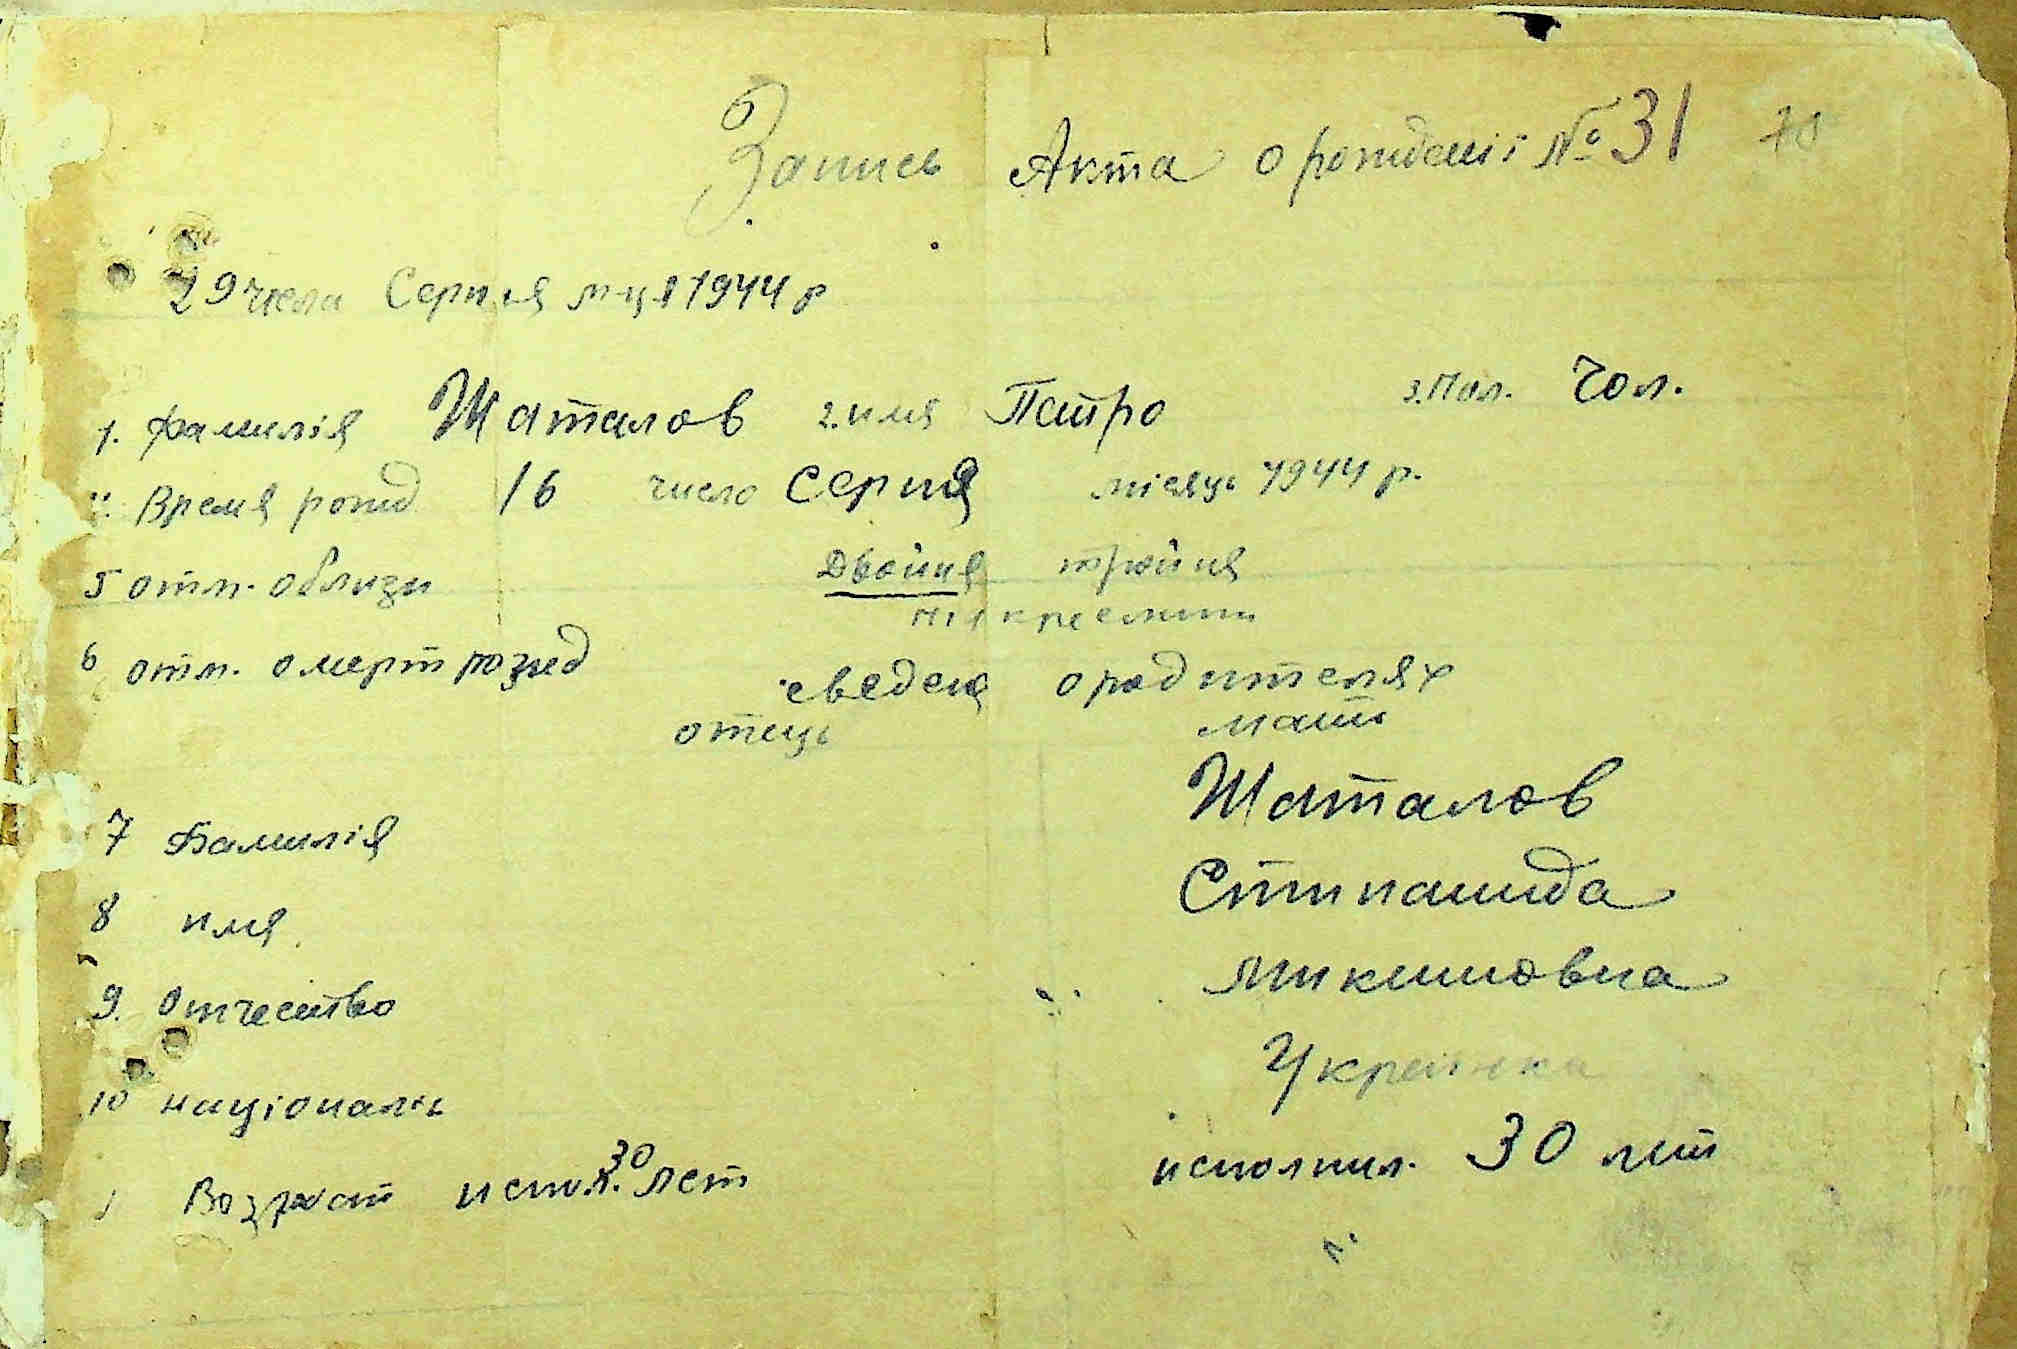 Запись Акта о рождениі № 31 70
29 числа Серпня м-ця 1944 р
1. фамилія Шаталов 2. имя Петро 3. Пол. Чол.
Время рожд 16 число Серпня місяць 1944 р.
5 отм. облизн двойня тройня
підкреслить
6 отм. о мертворожд
сведен о родителях
отець мать
7 Фамилія Шаталов
8 имя Степанида
9. Отчество Микитовна
10 націоналн Украінка
Возраст испол. 30 лет исполнил. 30 лет